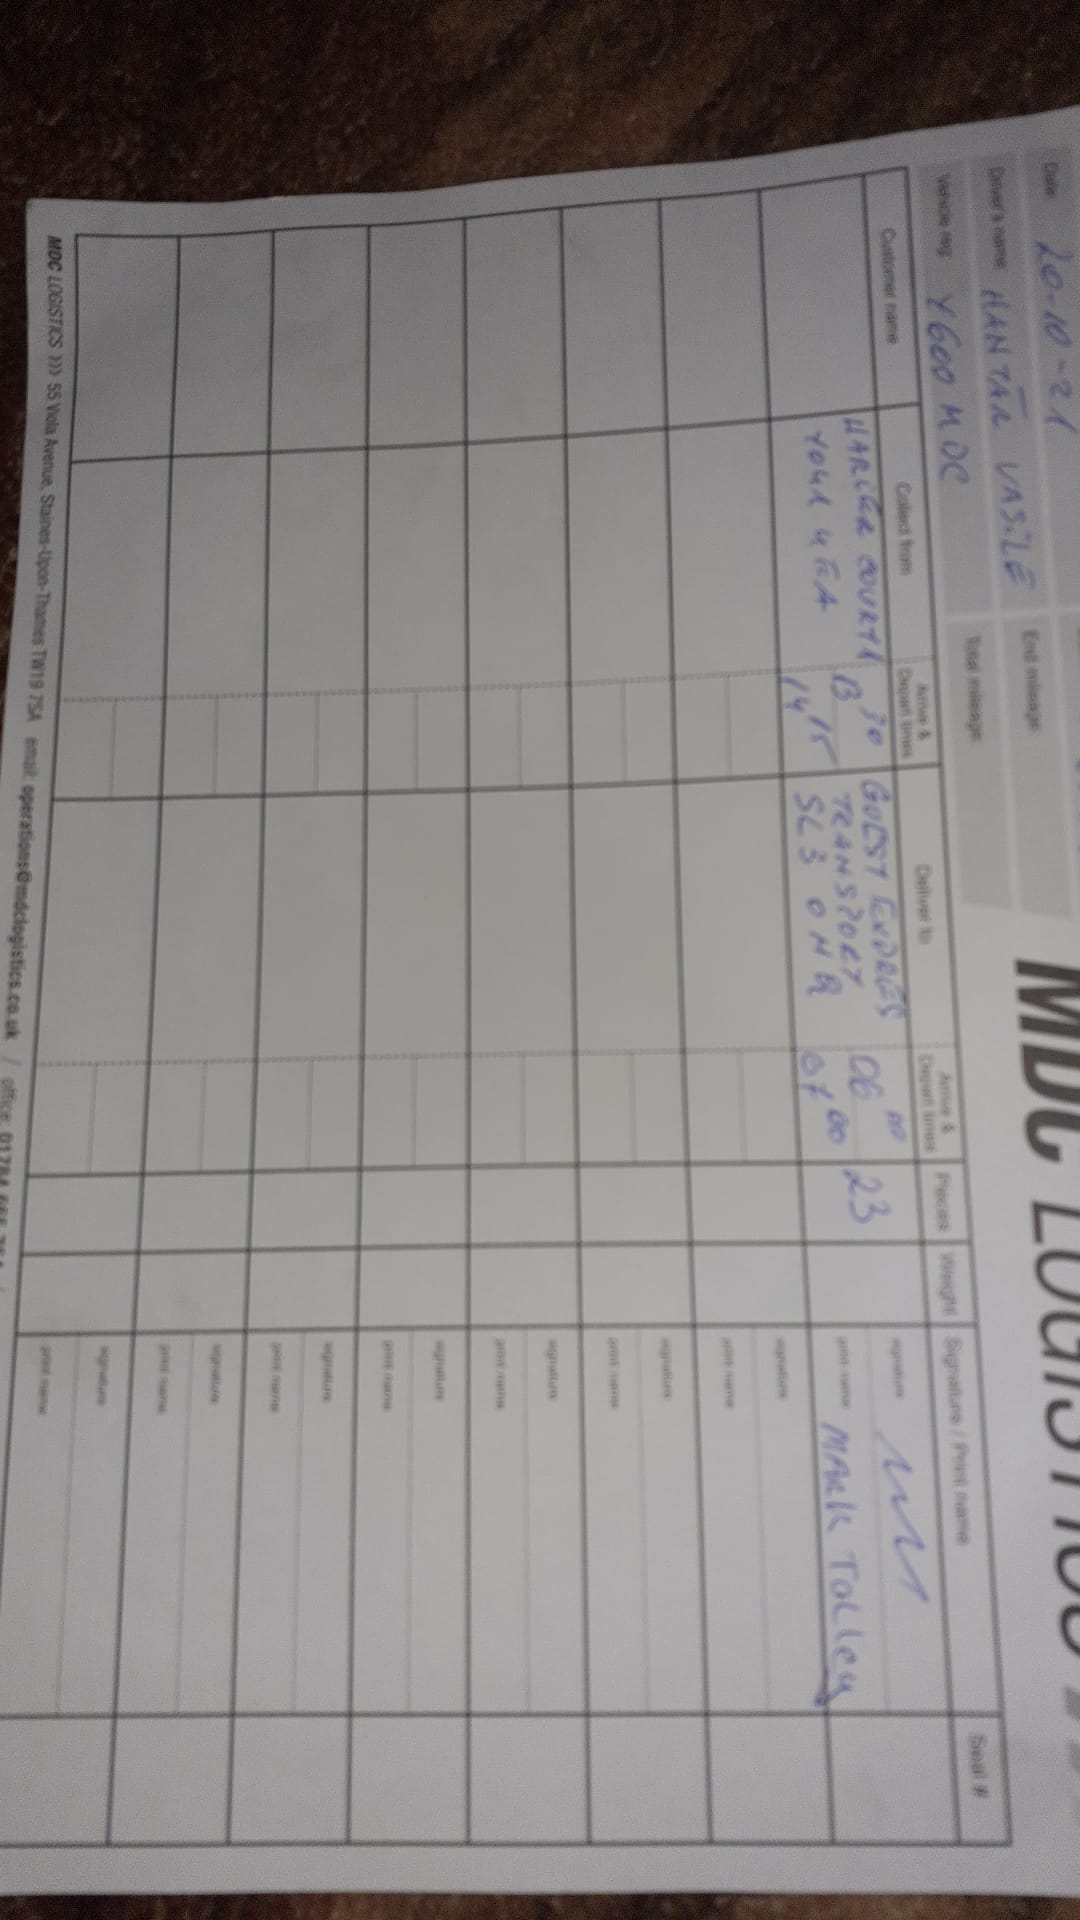 MDC LOGISTICS
Date: 20-10-21
Driver's name: HANTAR VASILE
End mileage:
Vehicle reg: Y600 MDC
Total mileage:
Customer name Collect from Arrive & Depart times Deliver to Arrive & Depart times Pieces Weight Signature / Print name Seal #
COURTH 13 30 GUEST 06 00 23 signature
YO41 4 14 15 TRANSPORT 07 00 print name MARK TOLLEY
SL3
signature
print name
signature
print name
signature
print name
signature
print name
signature
print name
signature
print name
signature
print name
MDC LOGISTICS ))) 55 Viola Avenue, Staines-Upon-Thames TW19 7SA email: operations@mdclogistics.co.uk / office: 01784